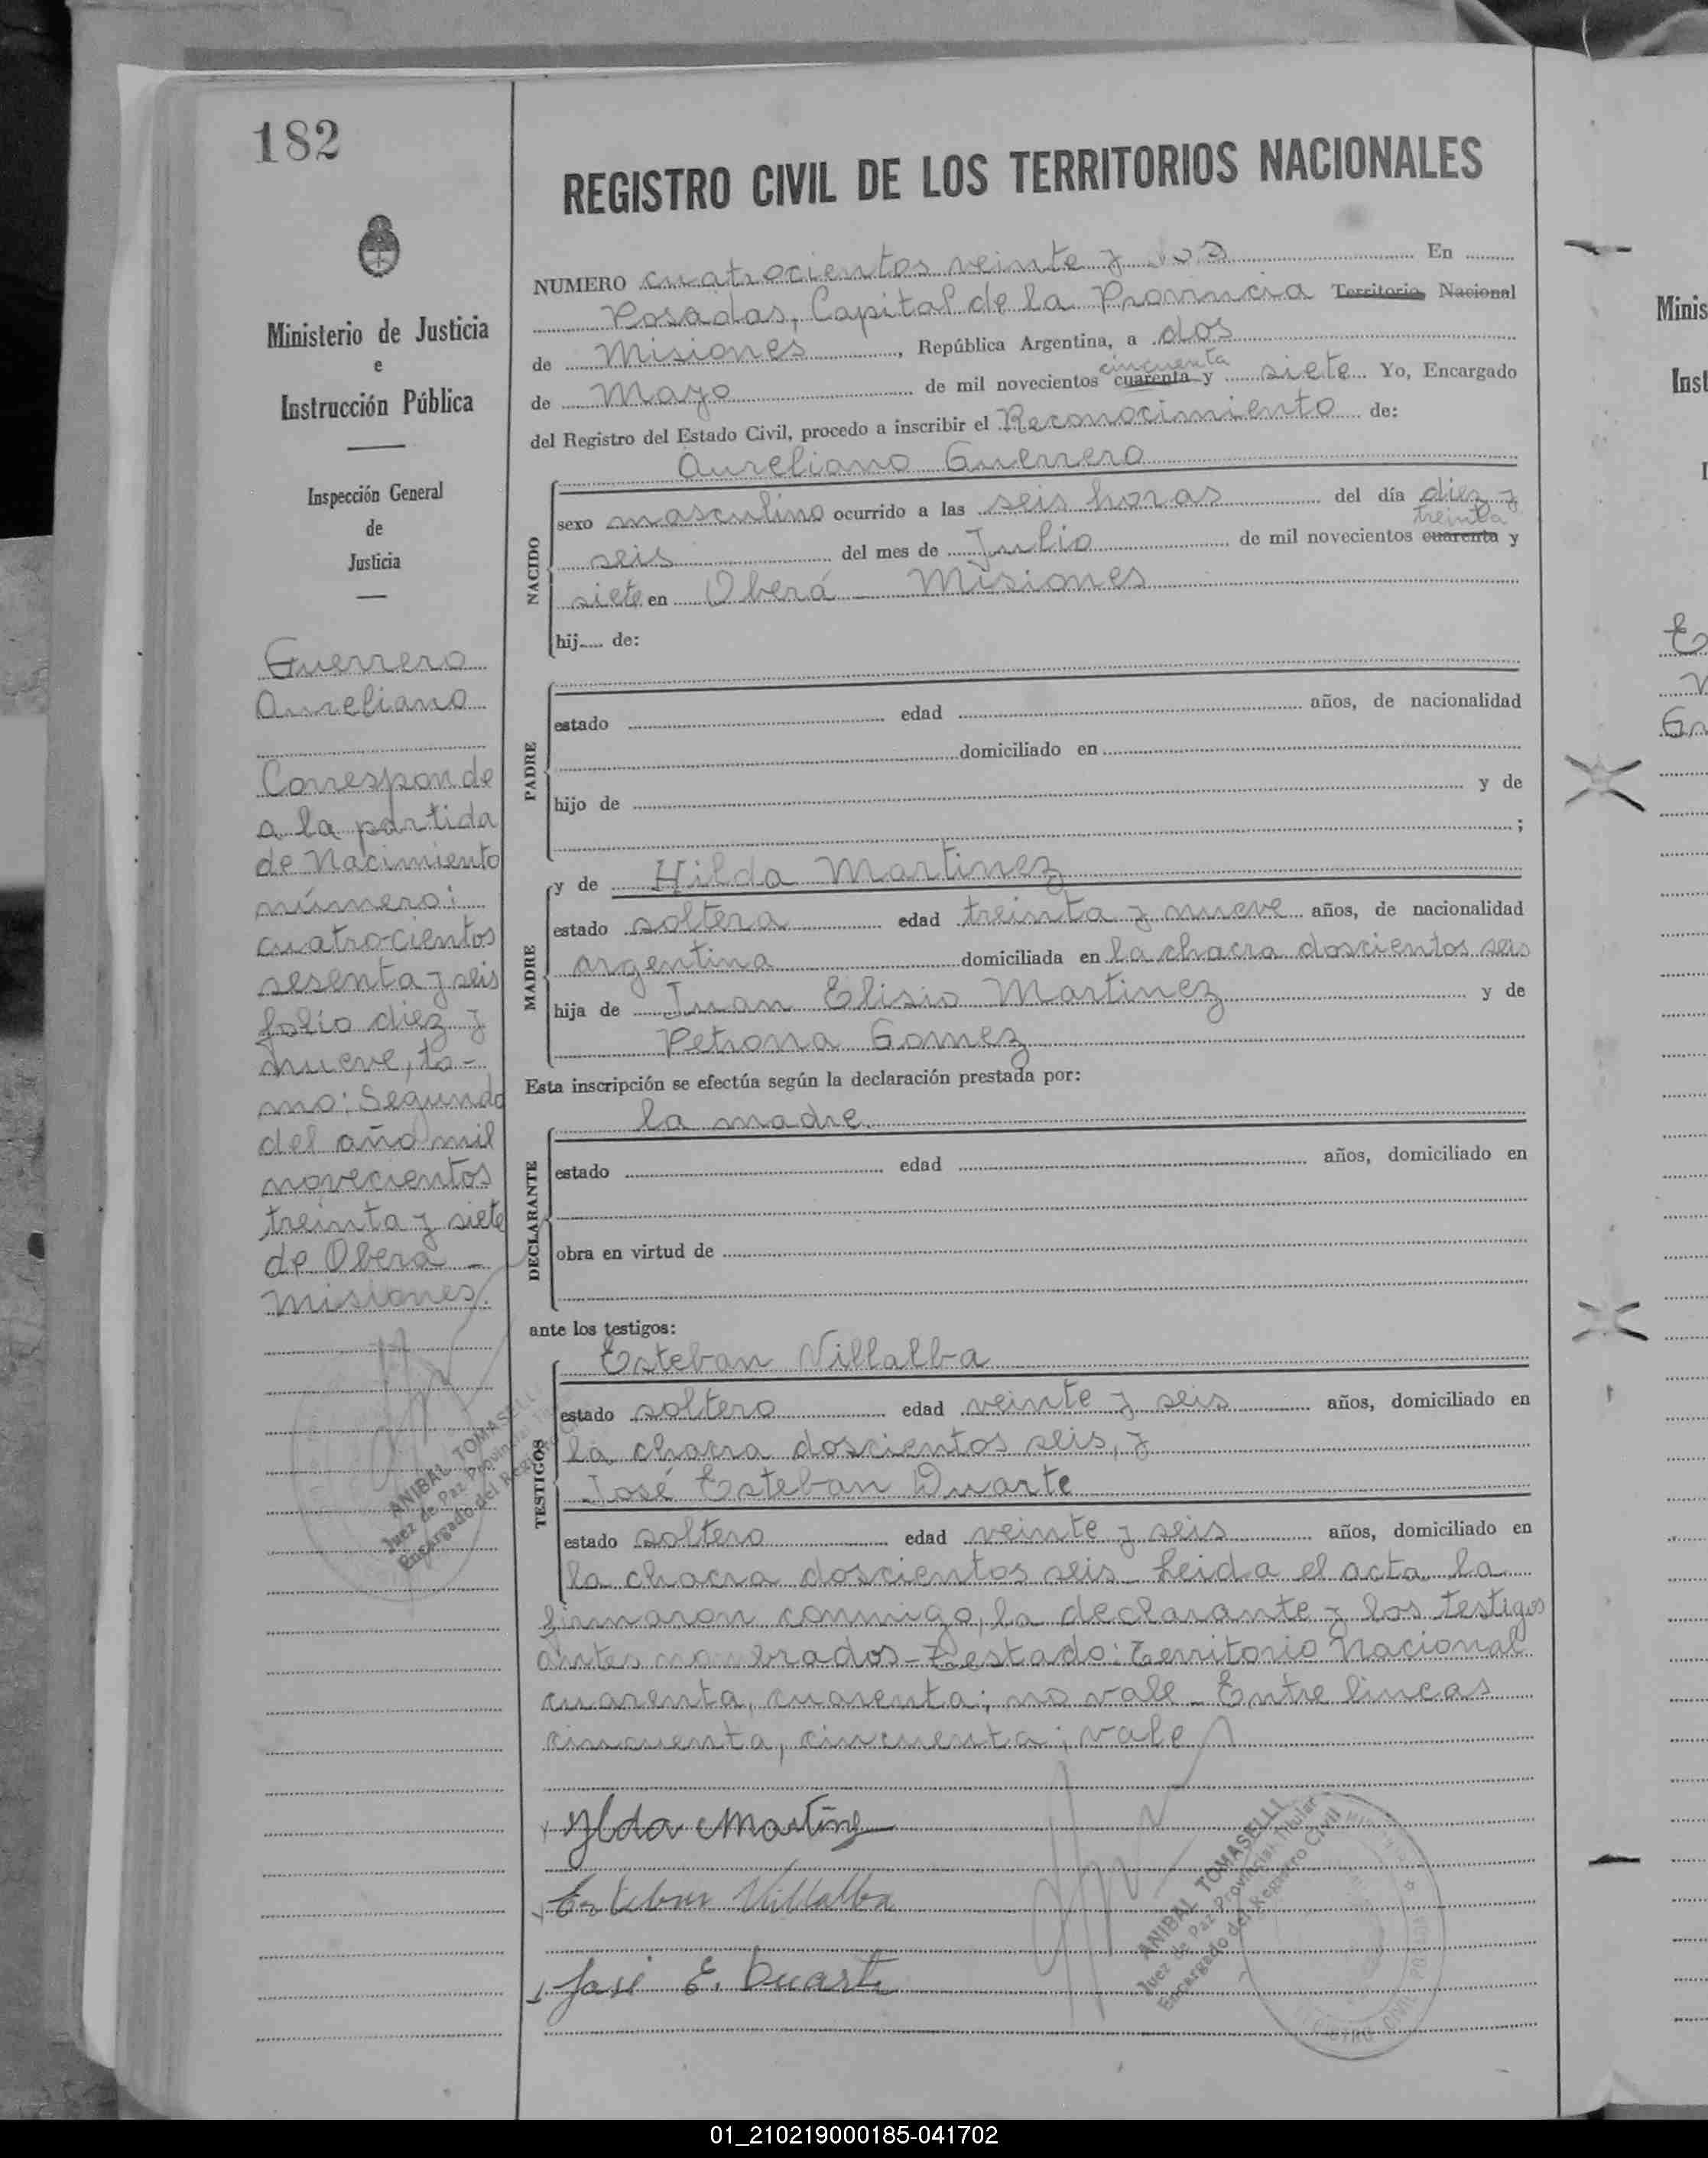 182
Ministerio de Justicia
e
Instrucción Pública
Inspección General
de
Justicia
Guerrero
Aureliano
Corresponde
a la partida
de Nacimiento
número:
cuatrocientos
sesenta y seis
folio diez y
nueve, to-
mo: Segundo
del año mil
novecientos
treinta y siete
de Oberá -
Misiones.
ANIBAL TOMASELLI
Juez de Paz Provincial
Encargado del Registro
REGISTRO CIVIL DE LOS TERRITORIOS NACIONALES
NUMERO cuatrocientos veinte y dos En
Posadas, Capital de la Provincia Territorio Nacional
de Misiones, República Argentina, a dos
cincuenta
de Mayo de mil novecientos cuarenta y siete Yo, Encargado
del Registro del Estado Civil, procedo a inscribir el Reconocimiento de:
Aureliano Guerrero
NACIDO
sexo masculino ocurrido a las seis horas del día diez y
treinta
seis del mes de Julio de mil novecientos cuarenta y
siete en Oberá - Misiones
hij de:
PADRE
estado edad años, de nacionalidad
domiciliado en
hijo de y de
;
MADRE
y de Hilda Martinez
estado soltera edad treinta y nueve años, de nacionalidad
argentina domiciliada en la chacra doscientos seis
hija de Juan Elisio Martinez y de
Petrona Gomez
Esta inscripción se efectúa según la declaración prestada por:
la madre.
DECLARANTE
estado edad años, domiciliado en
obra en virtud de
ante los testigos:
TESTIGOS
Esteban Villalba
estado soltero edad veinte y seis años, domiciliado en
la chacra doscientos seis, y
José Esteban Duarte
estado soltero edad veinte y seis años, domiciliado en
la chacra doscientos seis - Leida el acta la
firmaron conmigo, la declarante y los testigos
antes nombrados - Testado: Territorio Nacional
cuarenta, cuarenta; no vale - Entre lineas
cincuenta, cincuenta; vale
Ylda Martinez
Esteban Villalba
José E. Duarte
ANIBAL TOMASELLI
Juez de Paz Provincial Titular
Encargado del Registro Civil
Minis
Inst
01_210219000185-041702